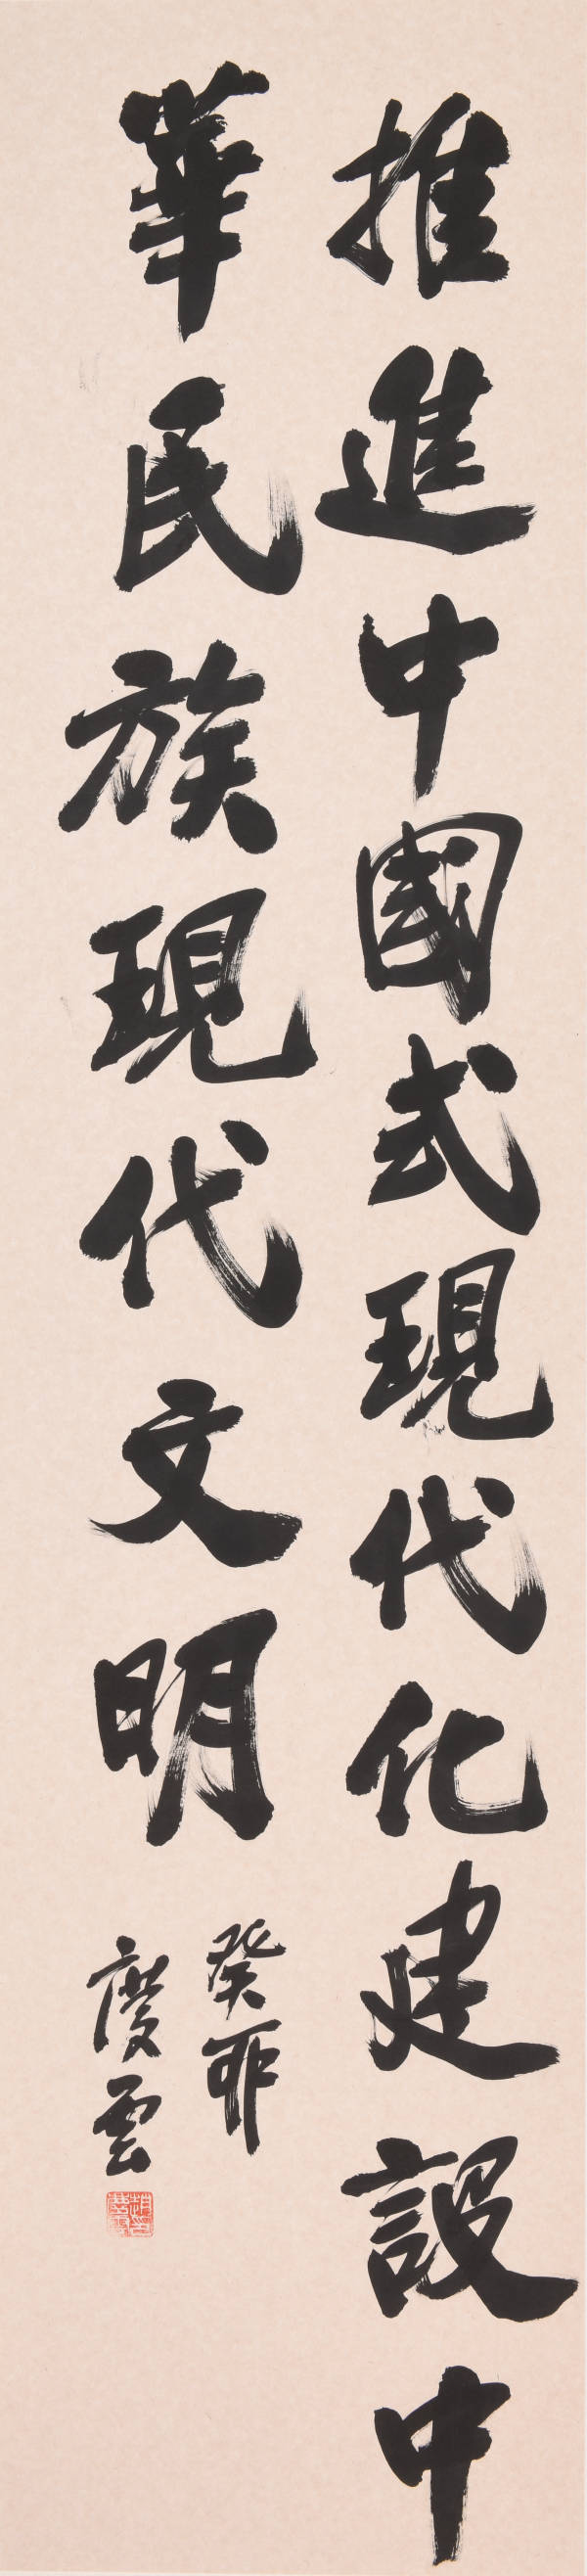 推進中國式現代化建設中
華民族現代文明
癸卯
慶雲